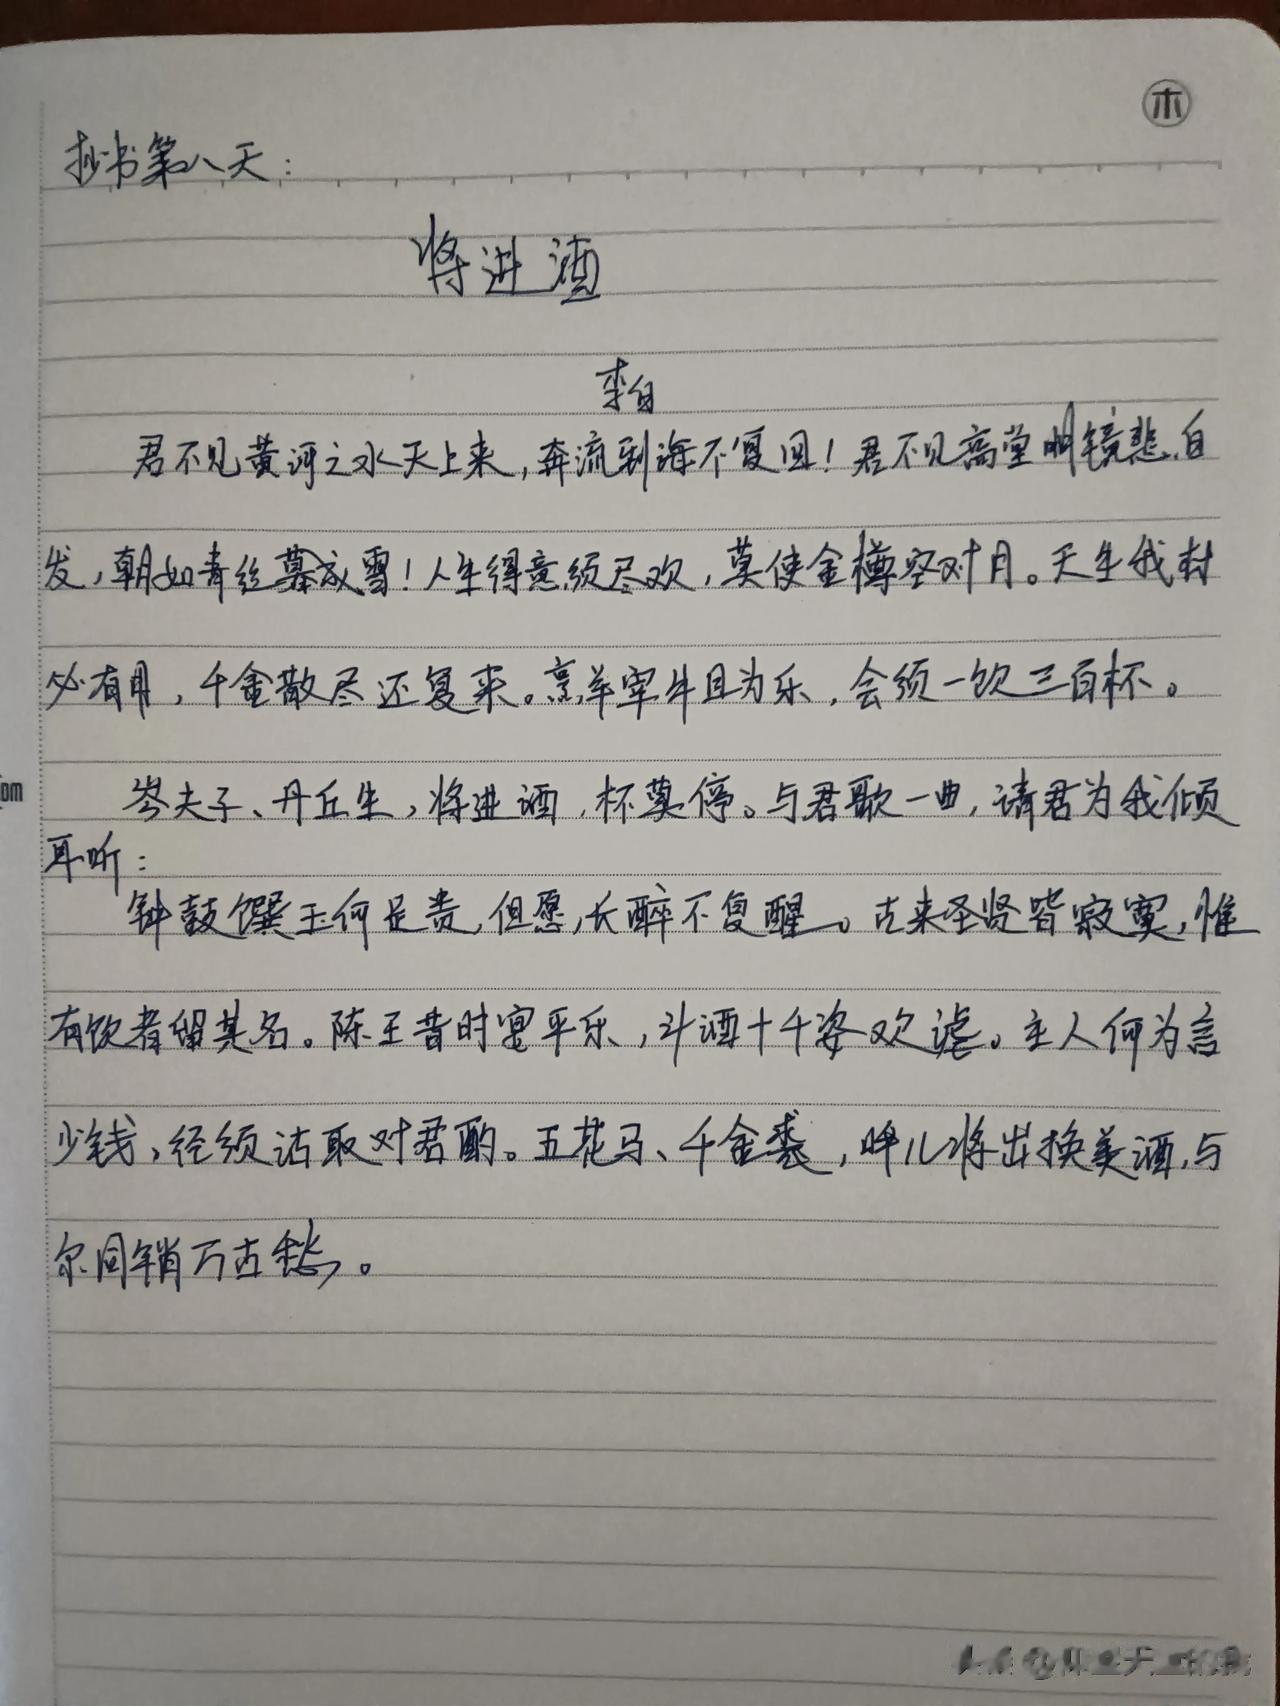 木
抄书第八天：
将进酒
李白
君不见黄河之水天上来，奔流到海不复回！君不见高堂明镜悲白
发，朝如青丝暮成雪！人生得意须尽欢，莫使金樽空对月。天生我材
必有用，千金散尽还复来。烹羊宰牛且为乐，会须一饮三百杯。
岑夫子、丹丘生，将进酒，杯莫停。与君歌一曲，请君为我倾
耳听：
钟鼓馔玉何足贵，但愿，长醉不复醒。古来圣贤皆寂寞，惟
有饮者留其名。陈王昔时宴平乐，斗酒十千姿欢谑。主人何为言
少钱，经须沽取对君酌。五花马、千金裘，呼儿将出换美酒，与
尔同销万古愁。
om